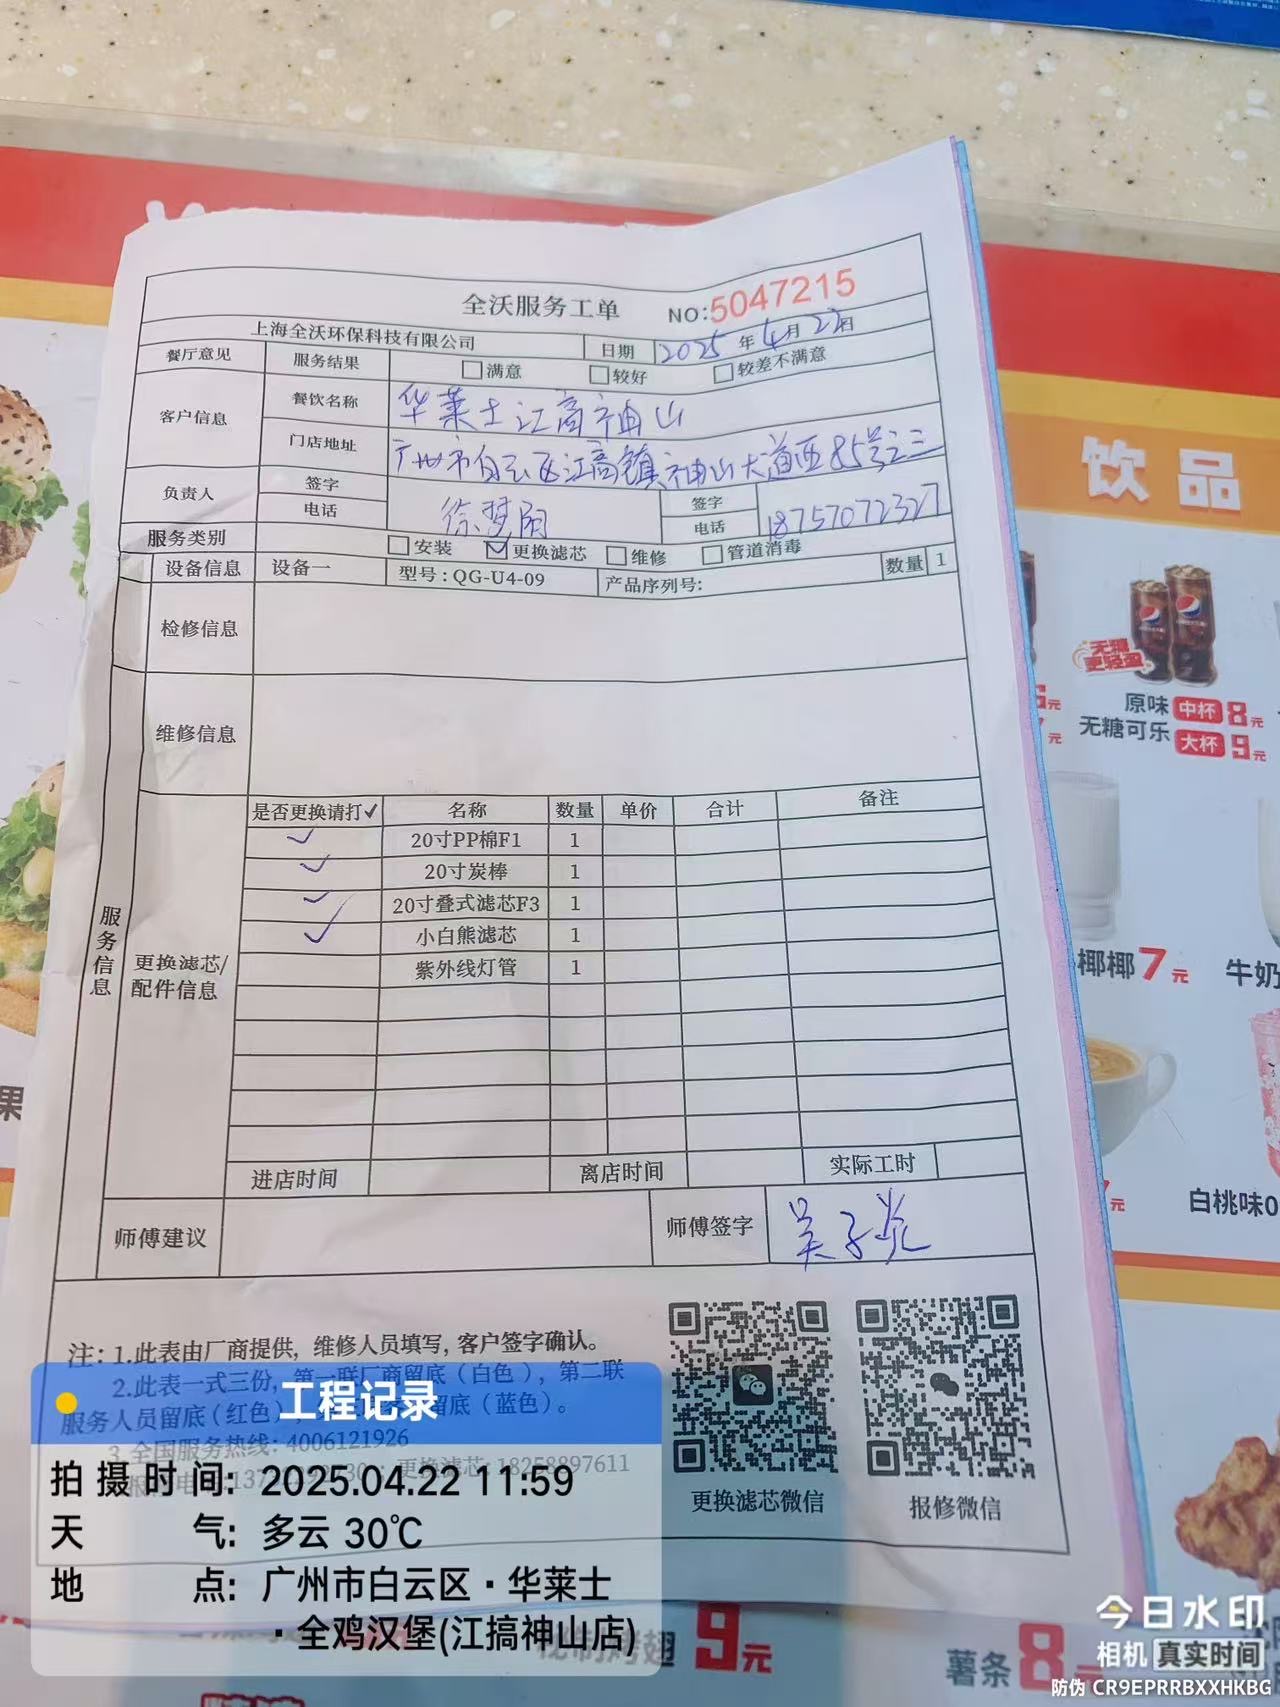 全沃服务工单 NO:5047215
上海全沃环保科技有限公司 日期 2025 年 4月 22日
餐厅意见 服务结果 满意 较好 较差不满意
客户信息 餐饮名称 华莱士江高神山
门店地址 广州市白云区江高镇神山大道西85号之三
负责人 签字 电话 徐梦 签字 电话 18757072327
服务类别 安装 更换滤芯 维修 管道消毒
设备信息 设备一 型号:QG-U4-09 产品序列号: 数量 1
检修信息
维修信息
服务信息
更换滤芯/配件信息
是否更换请打✓ 名称 数量 单价 合计 备注
✓ 20寸PP棉F1 1
✓ 20寸炭棒 1
✓ 20寸叠式滤芯F3 1
✓ 小白熊滤芯 1
紫外线灯管 1
进店时间 离店时间 实际工时
师傅建议 师傅签字 吴子
注: 1.此表由厂商提供, 维修人员填写, 客户签字确认。
2.此表一式三份, 第一联厂商留底(白色), 第二联
服务人员留底(红色), 留底(蓝色)。
3.全国服务热线: 4006121926
更换滤芯: 18258897611
更换滤芯微信 报修微信
工程记录
拍摄时间: 2025.04.22 11:59
天气: 多云 30℃
地点: 广州市白云区·华莱士
·全鸡汉堡(江搞神山店)
饮品
无糖更轻盈
原味 中杯 8元
无糖可乐 大杯 9元
椰椰7元 牛奶
白桃味
烤翅 9元
薯条 8元
今日水印
相机 真实时间
防伪 CR9EPRRBXXHKBG